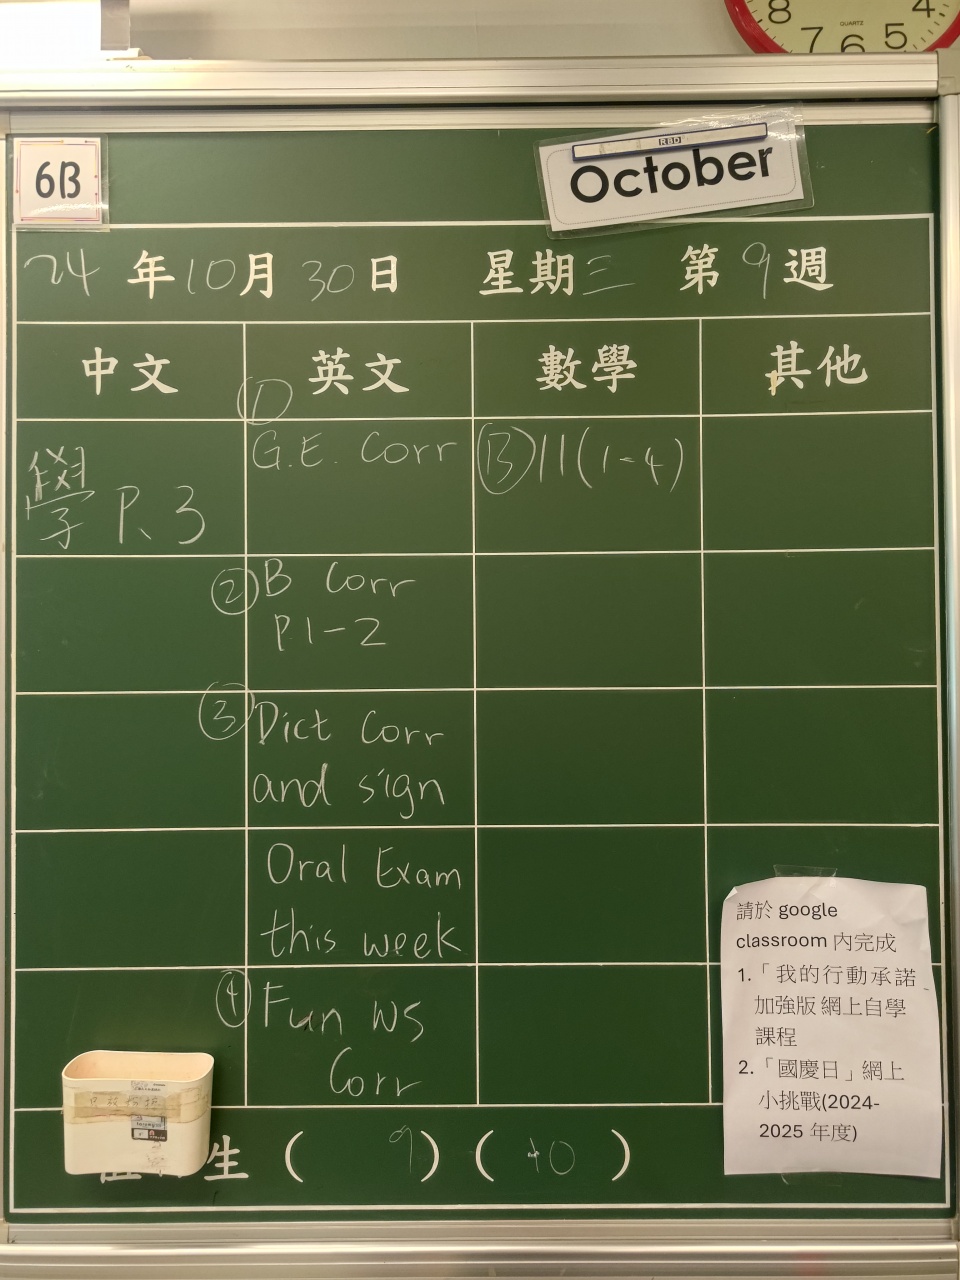 8 7 6 5 4
QUARTZ
6B
RBD
October
24 年 10 月 30 日 星期三 第 9 週
中文 英文 數學 其他
①
G.E. Corr
學 P. 3
Ⓑ 11 (1-4)
② B Corr
P.1-2
③ Dict Corr
and sign
Oral Exam
this week
④ Fun WS
Corr
請於 google
classroom 內完成
1.「我的行動承諾
加強版 網上自學
課程
2.「國慶日」網上
小挑戰(2024-
2025 年度)
生 ( 9 ) ( 10 )